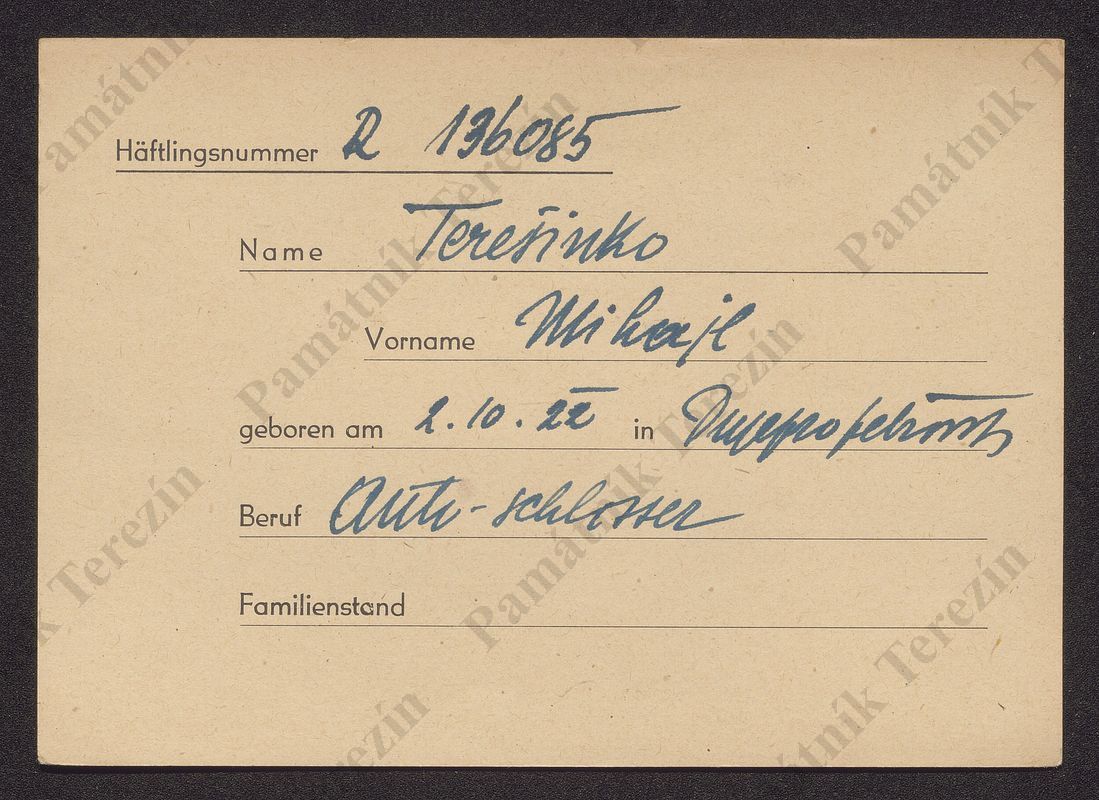 Häftlingsnummer R 136085
Name Terešinko
Vorname Mihajl
geboren am 2.10.22 in Dnjepropetrovsk
Beruf Auto-schlosser
Familienstand
Památník Terezín